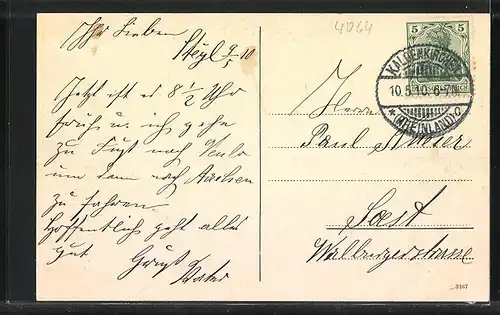 Ihr Lieben
Steyl 9/5 10
Jetzt ist es 8 1/2 Uhr
früh u. ich gehe
zu Fuß nach Venlo
um dann nach Aachen
zu fahren
Hoffentlich geht alles
gut Gruß
Vater
4064
5 5
KALDENKIRCHEN
10.5.10. 6-7N.
* (RHEINLAND) c
Herrn
Paul
Soest
Walburgerstrasse
5267